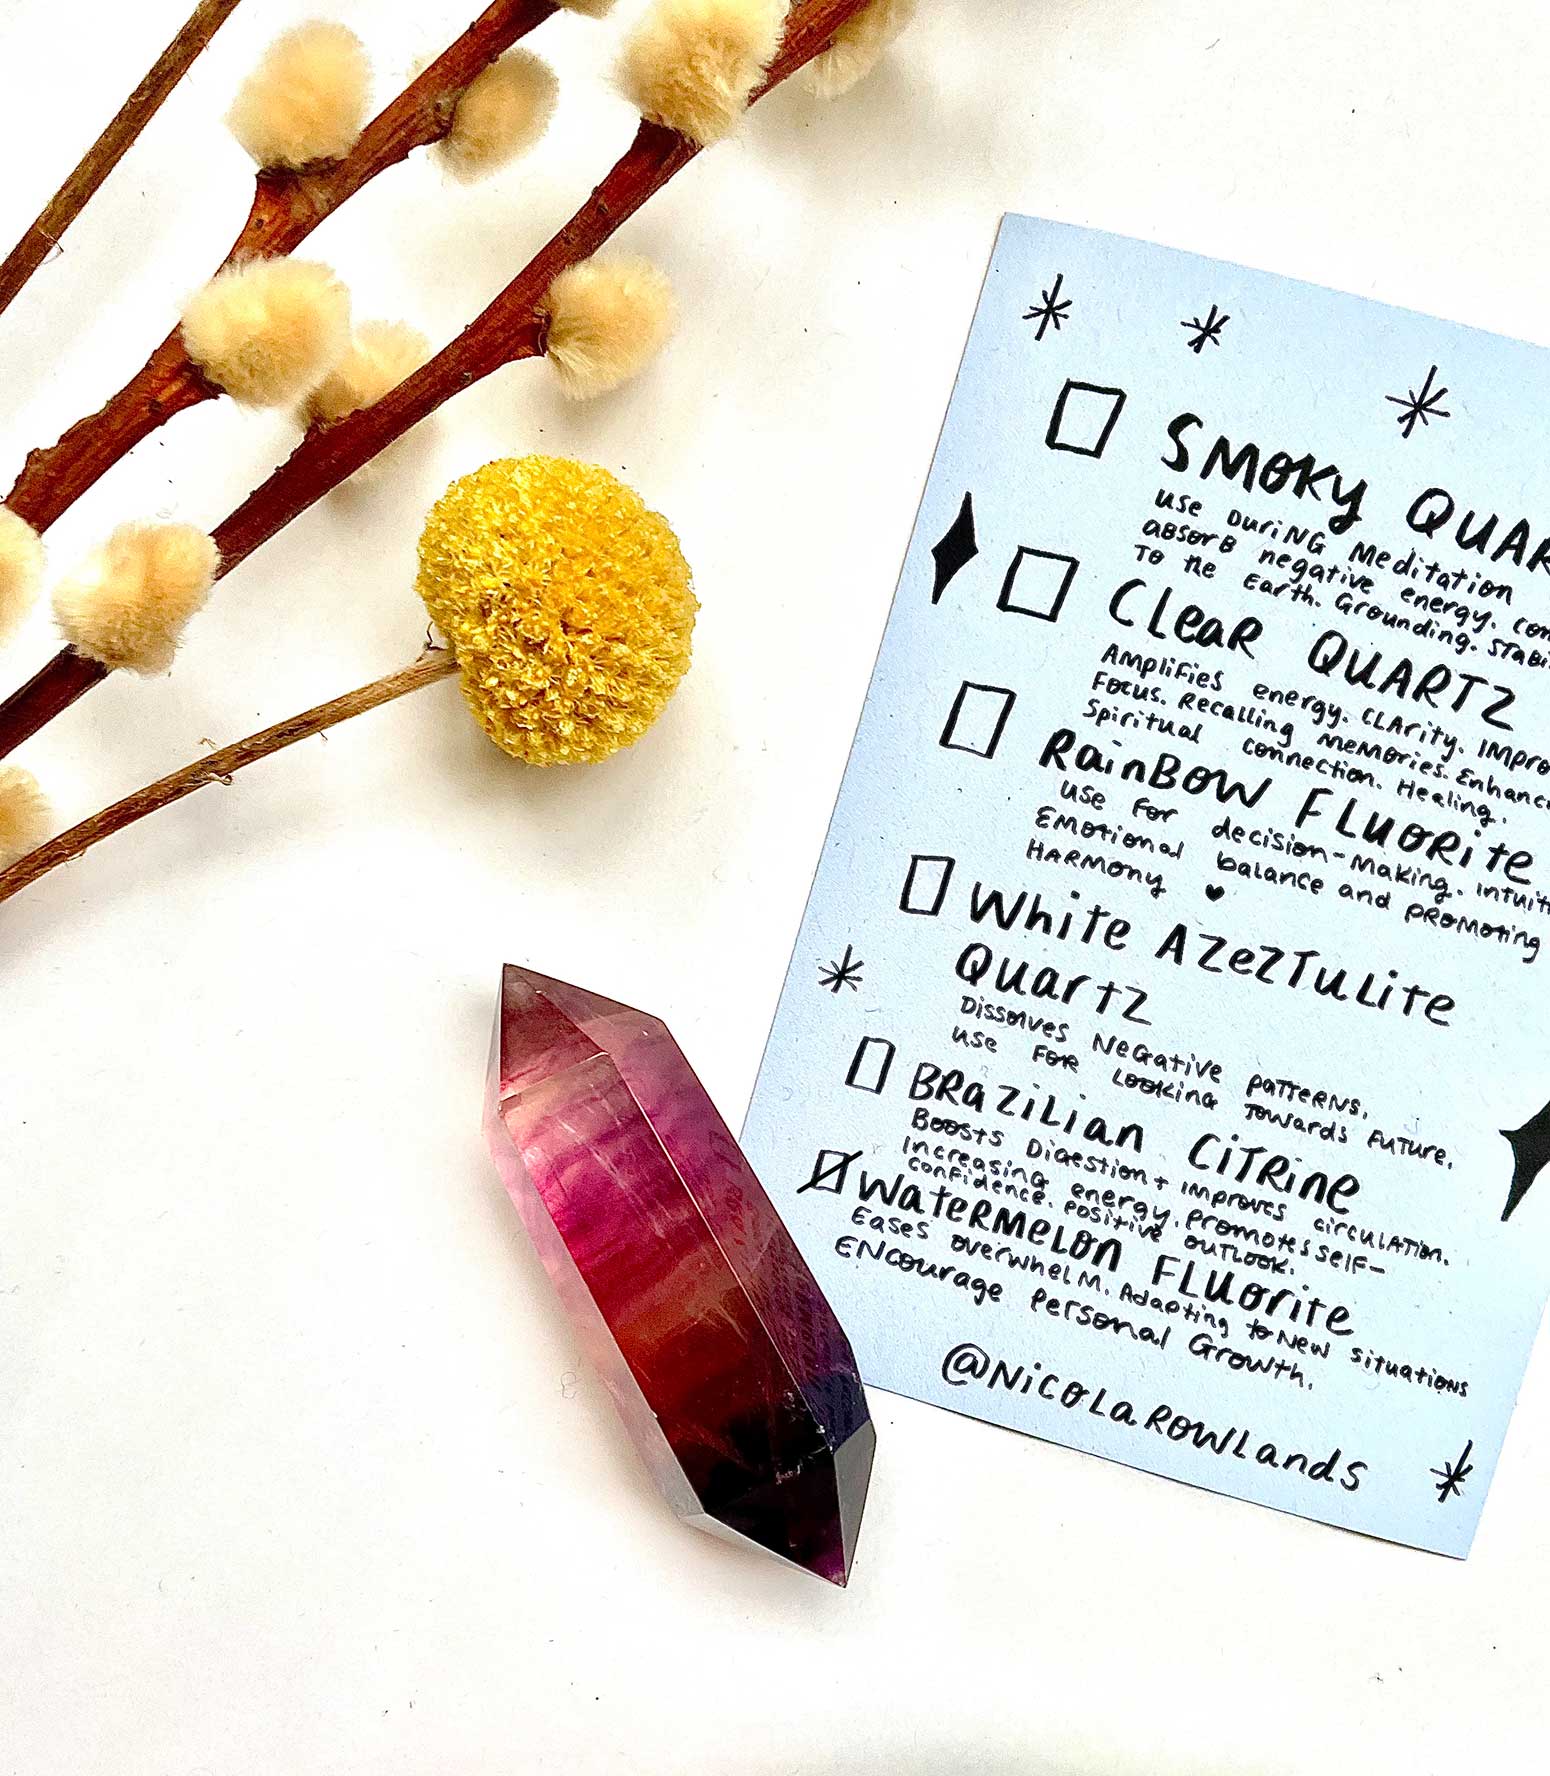 SMOKY QUAR
USE DURING MEDITATION
ABSORB negative energy. con
TO THE EARTH. Grounding. STABI
CLEAR QUARTZ
AMPLIFIES energy. CLARITY. IMPRO
FOCUS. Recalling MEMORIES. Enhanc
Spiritual connection. Healing.
RAINBOW FLUORITE
USE FOR decision-MAKING. INTUIT
EMOTIONAL balance and PROMOTING
HARMONY ♥
White AZEZTULITE
QUARTZ
DISSOLVES NEGATIVE PATTERNS.
USE FOR LOOKING TOWARDS FUTURE.
BRAZILIAN CITRINE
BOOSTS DIGESTION + IMPROVES CIRCULATION.
INCREASING energy. PROMOTES SELF-
CONFIDENCE. POSITIVE OUTLOOK.
WATERMELON FLUORITE
EASES OVERWHELM. Adapting to NEW SITUATIONS
ENCOURAGE PERSONAL GROWTH.
@NICOLAROWLANDS